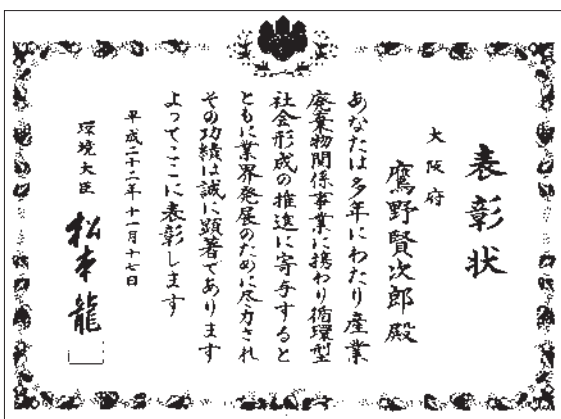 表彰状
大阪府
鷹野賢次郎殿
あなたは多年にわたり産業
廃棄物関係事業に携わり循環型
社会形成の推進に寄与すると
ともに業界発展のために尽力され
その功績は誠に顕著であります
よってここに表彰します
平成二十二年十一月十七日
環境大臣
松本龍